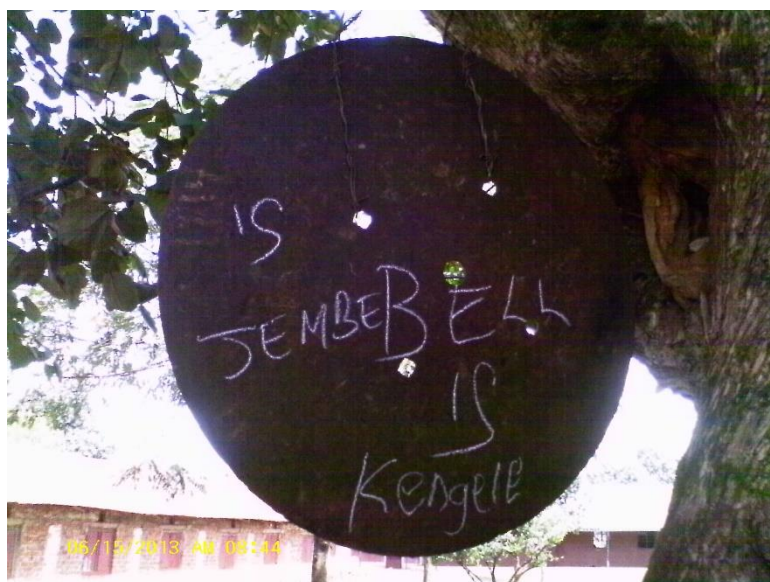 IS
JEMBE BELL
IS
Kengele
06/15/2013 AM 08:44